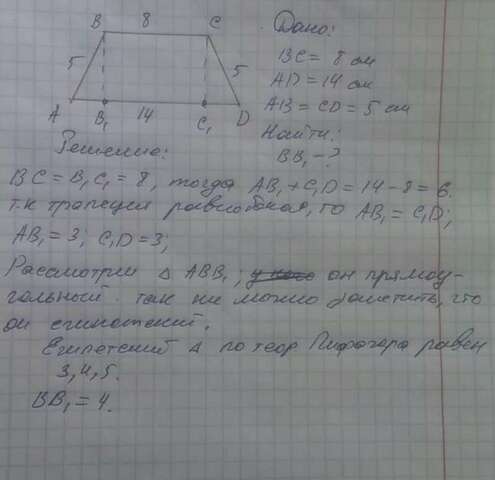 B 8 C
5 5
A B₁ 14 C₁ D
Дано:
BC = 8 см
AD = 14 см
AB = CD = 5 см
Найти:
BB₁ - ?
Решение:
BC = B₁C₁ = 8, тогда AB₁ + C₁D = 14 - 8 = 6.
т.к трапеция равнобокая, то AB₁ = C₁D;
AB₁ = 3; C₁D = 3;
Рассмотрим Δ ABB₁; он прямоу-
гольный. так же можно заметить, что
он египетский.
Египетский Δ по теор. Пифагора равен
3, 4, 5.
BB₁ = 4.